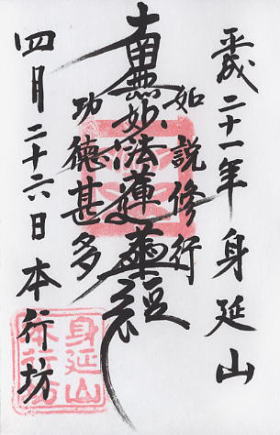 平成二十一年 身延山
如説修行
南無妙法蓮華経
功徳甚多
四月二十六日 本行坊
身延山
本行坊